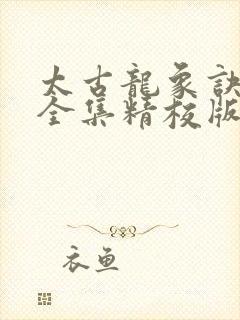 太古龍象訣
全集精校版
衣魚